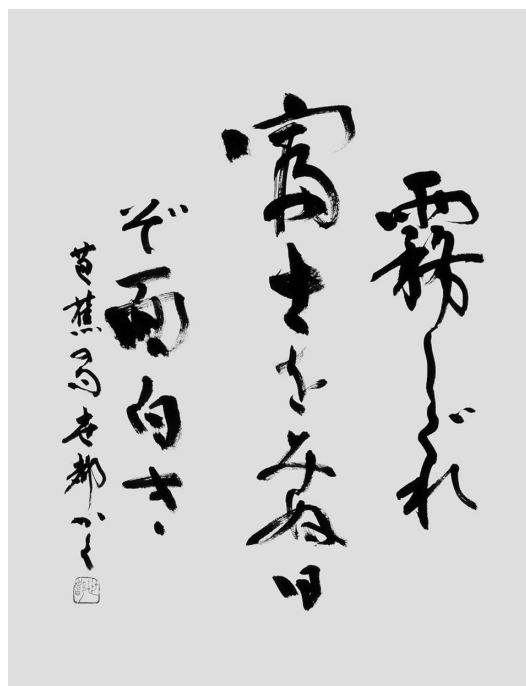 霧しぐれ
富士をみぬ日
ぞ面白き
芭蕉の句 世都かく